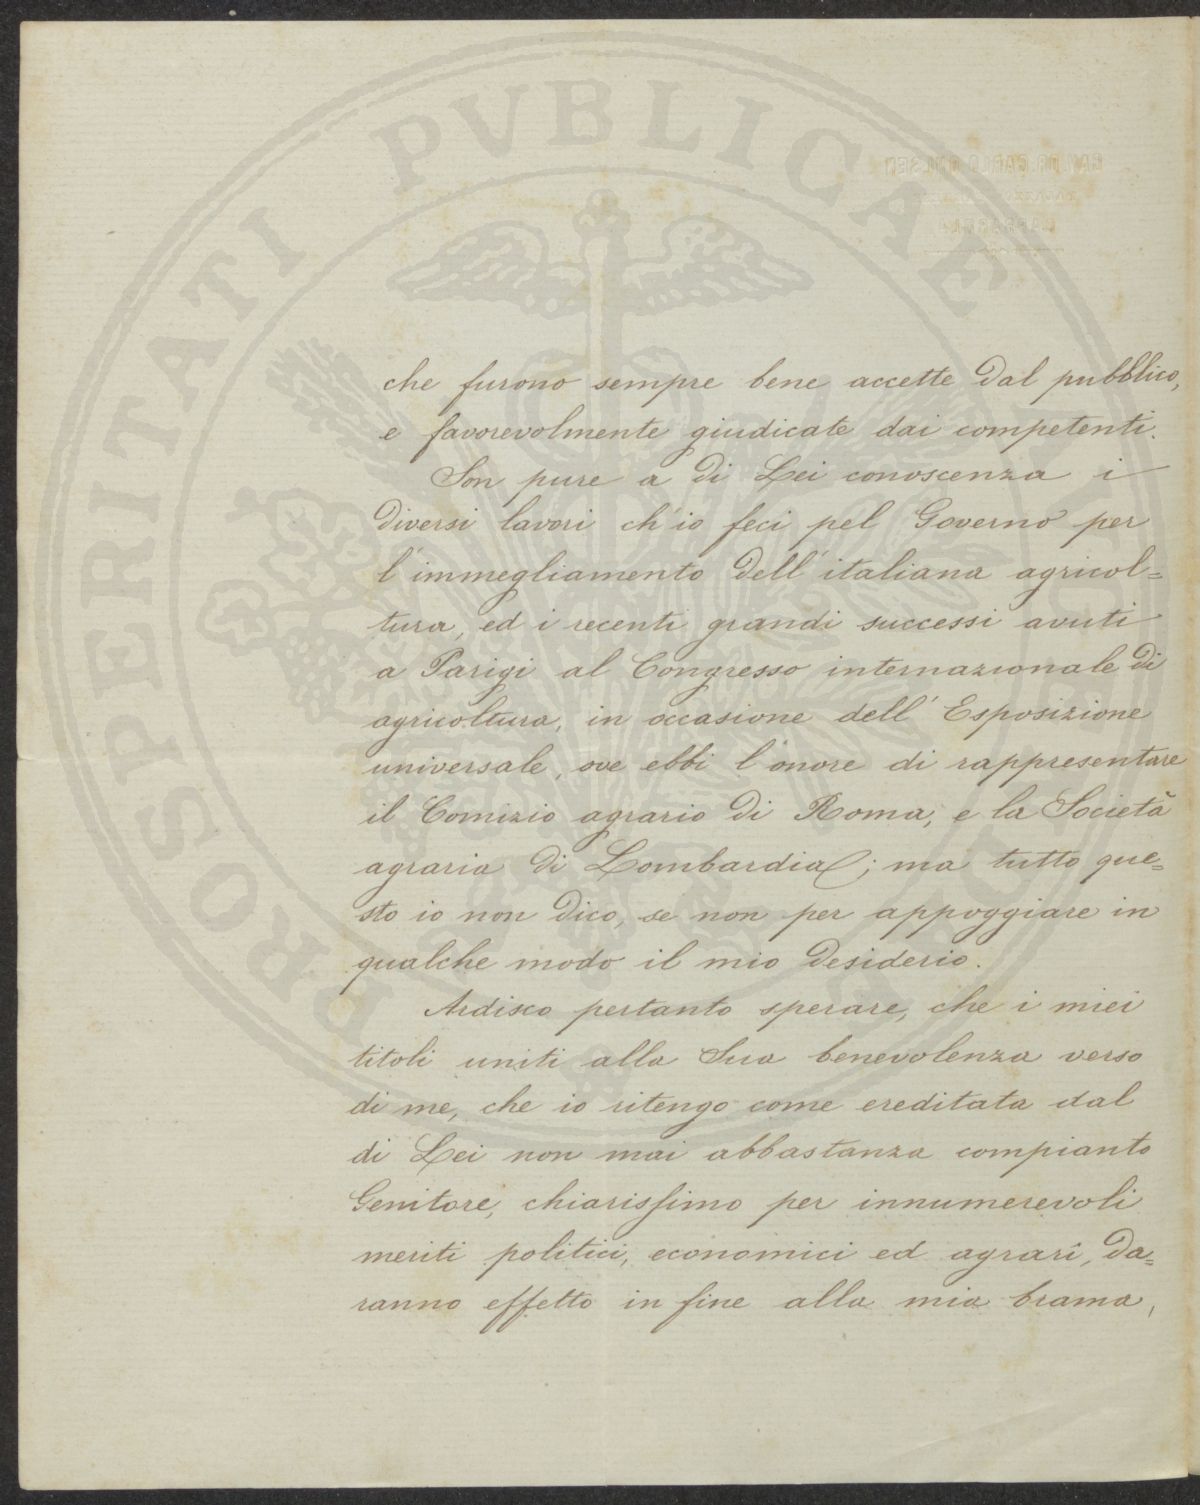 PROSPERITATI PVBLICAE
che furono sempre bene accette dal pubblico,
e favorevolmente giudicate dai competenti.
Son pure a di Lei conoscenza i
diversi lavori ch'io feci pel Governo per
l'immegliamento dell'italiana agricol=
tura, ed i recenti grandi successi avuti
a Parigi al Congresso internazionale di
agricoltura, in occasione dell'Esposizione
universale, ove ebbi l'onore di rappresentare
il Comizio agrario di Roma, e la Società
agraria di Lombardia; ma tutto que=
sto io non dico, se non per appoggiare in
qualche modo il mio desiderio.
Ardisco pertanto sperare, che i miei
titoli uniti alla Sua benevolenza verso
di me, che io ritengo come ereditata dal
di Lei non mai abbastanza compianto
Genitore, chiarissimo per innumerevoli
meriti politici, economici ed agrarî, da=
ranno effetto in fine alla mia brama,